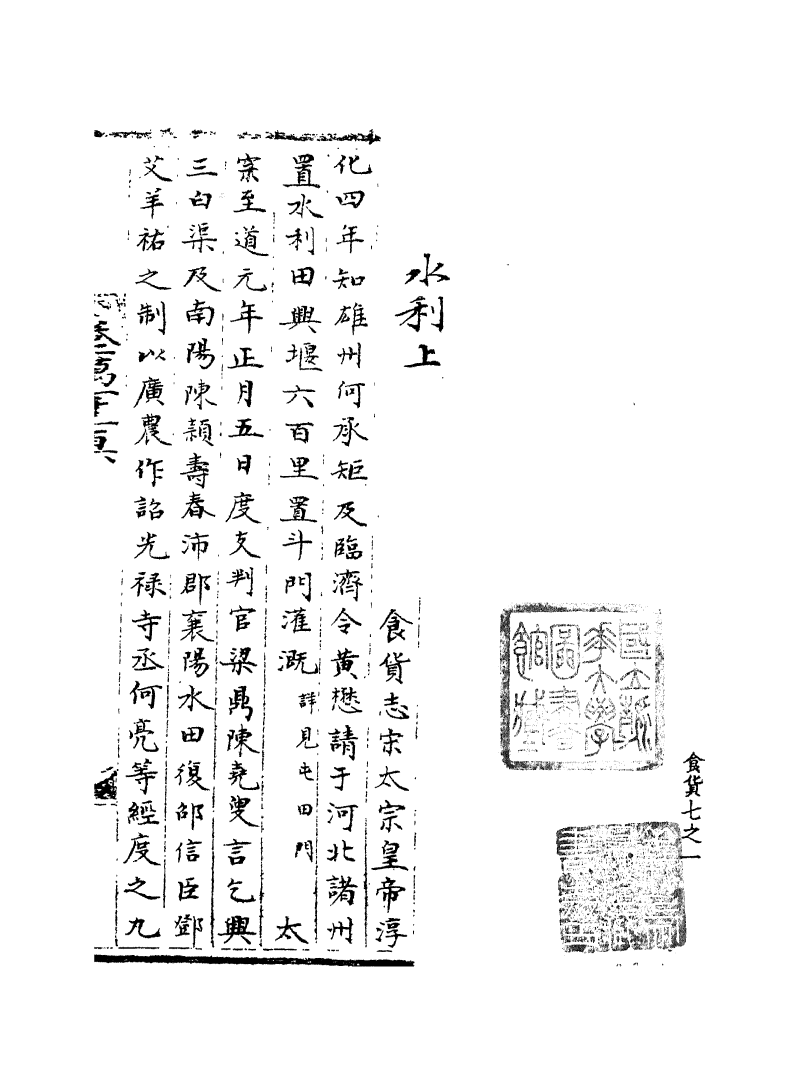 食貨七之一
水利上
食貨志宋太宗皇帝淳
化四年知雄州何承矩及臨濟令黃懋請于河北諸州
置水利田興堰六百里置斗門灌溉詳見屯田門 太
宗至道元年正月五日度支判官梁鼎陳堯叟言乞興
三白渠及南陽陳頴壽春沛郡襄陽水田復邵信臣鄧
艾羊祐之制以廣農作詔光祿寺丞何亮等經度之九